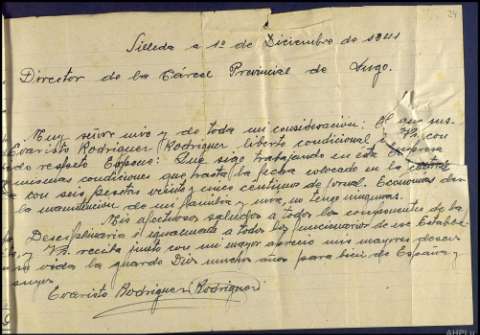 24
Silleda a 1º de Diciembre de 1941
Director de la Cárcel Provincial de Lugo.
Muy señor mio y de toda mi consideración: El que sus-
Evaristo Rodriguez Rodriguez, liberto condicional, a Vd. con
todo respeto Expone: Que sigo trabajando en esta Empresa
mismas condiciones que hasta la fecha colocado en la
con seis pesetas veinte y cinco centimos de jornal. Economias
la manutención de mi familia y mia, no tengo ningunas.
Mis afectuosos saludos a todos los componentes de la
Disciplinaria é igualmente a todos los funcionarios de ese Estable-
y Vd. reciba junto con mi mayor aprecio mis mayores deseos
vida la guarde Dios muchos años para bien de España y
suyos
Evaristo Rodriguez (Rodriguez)